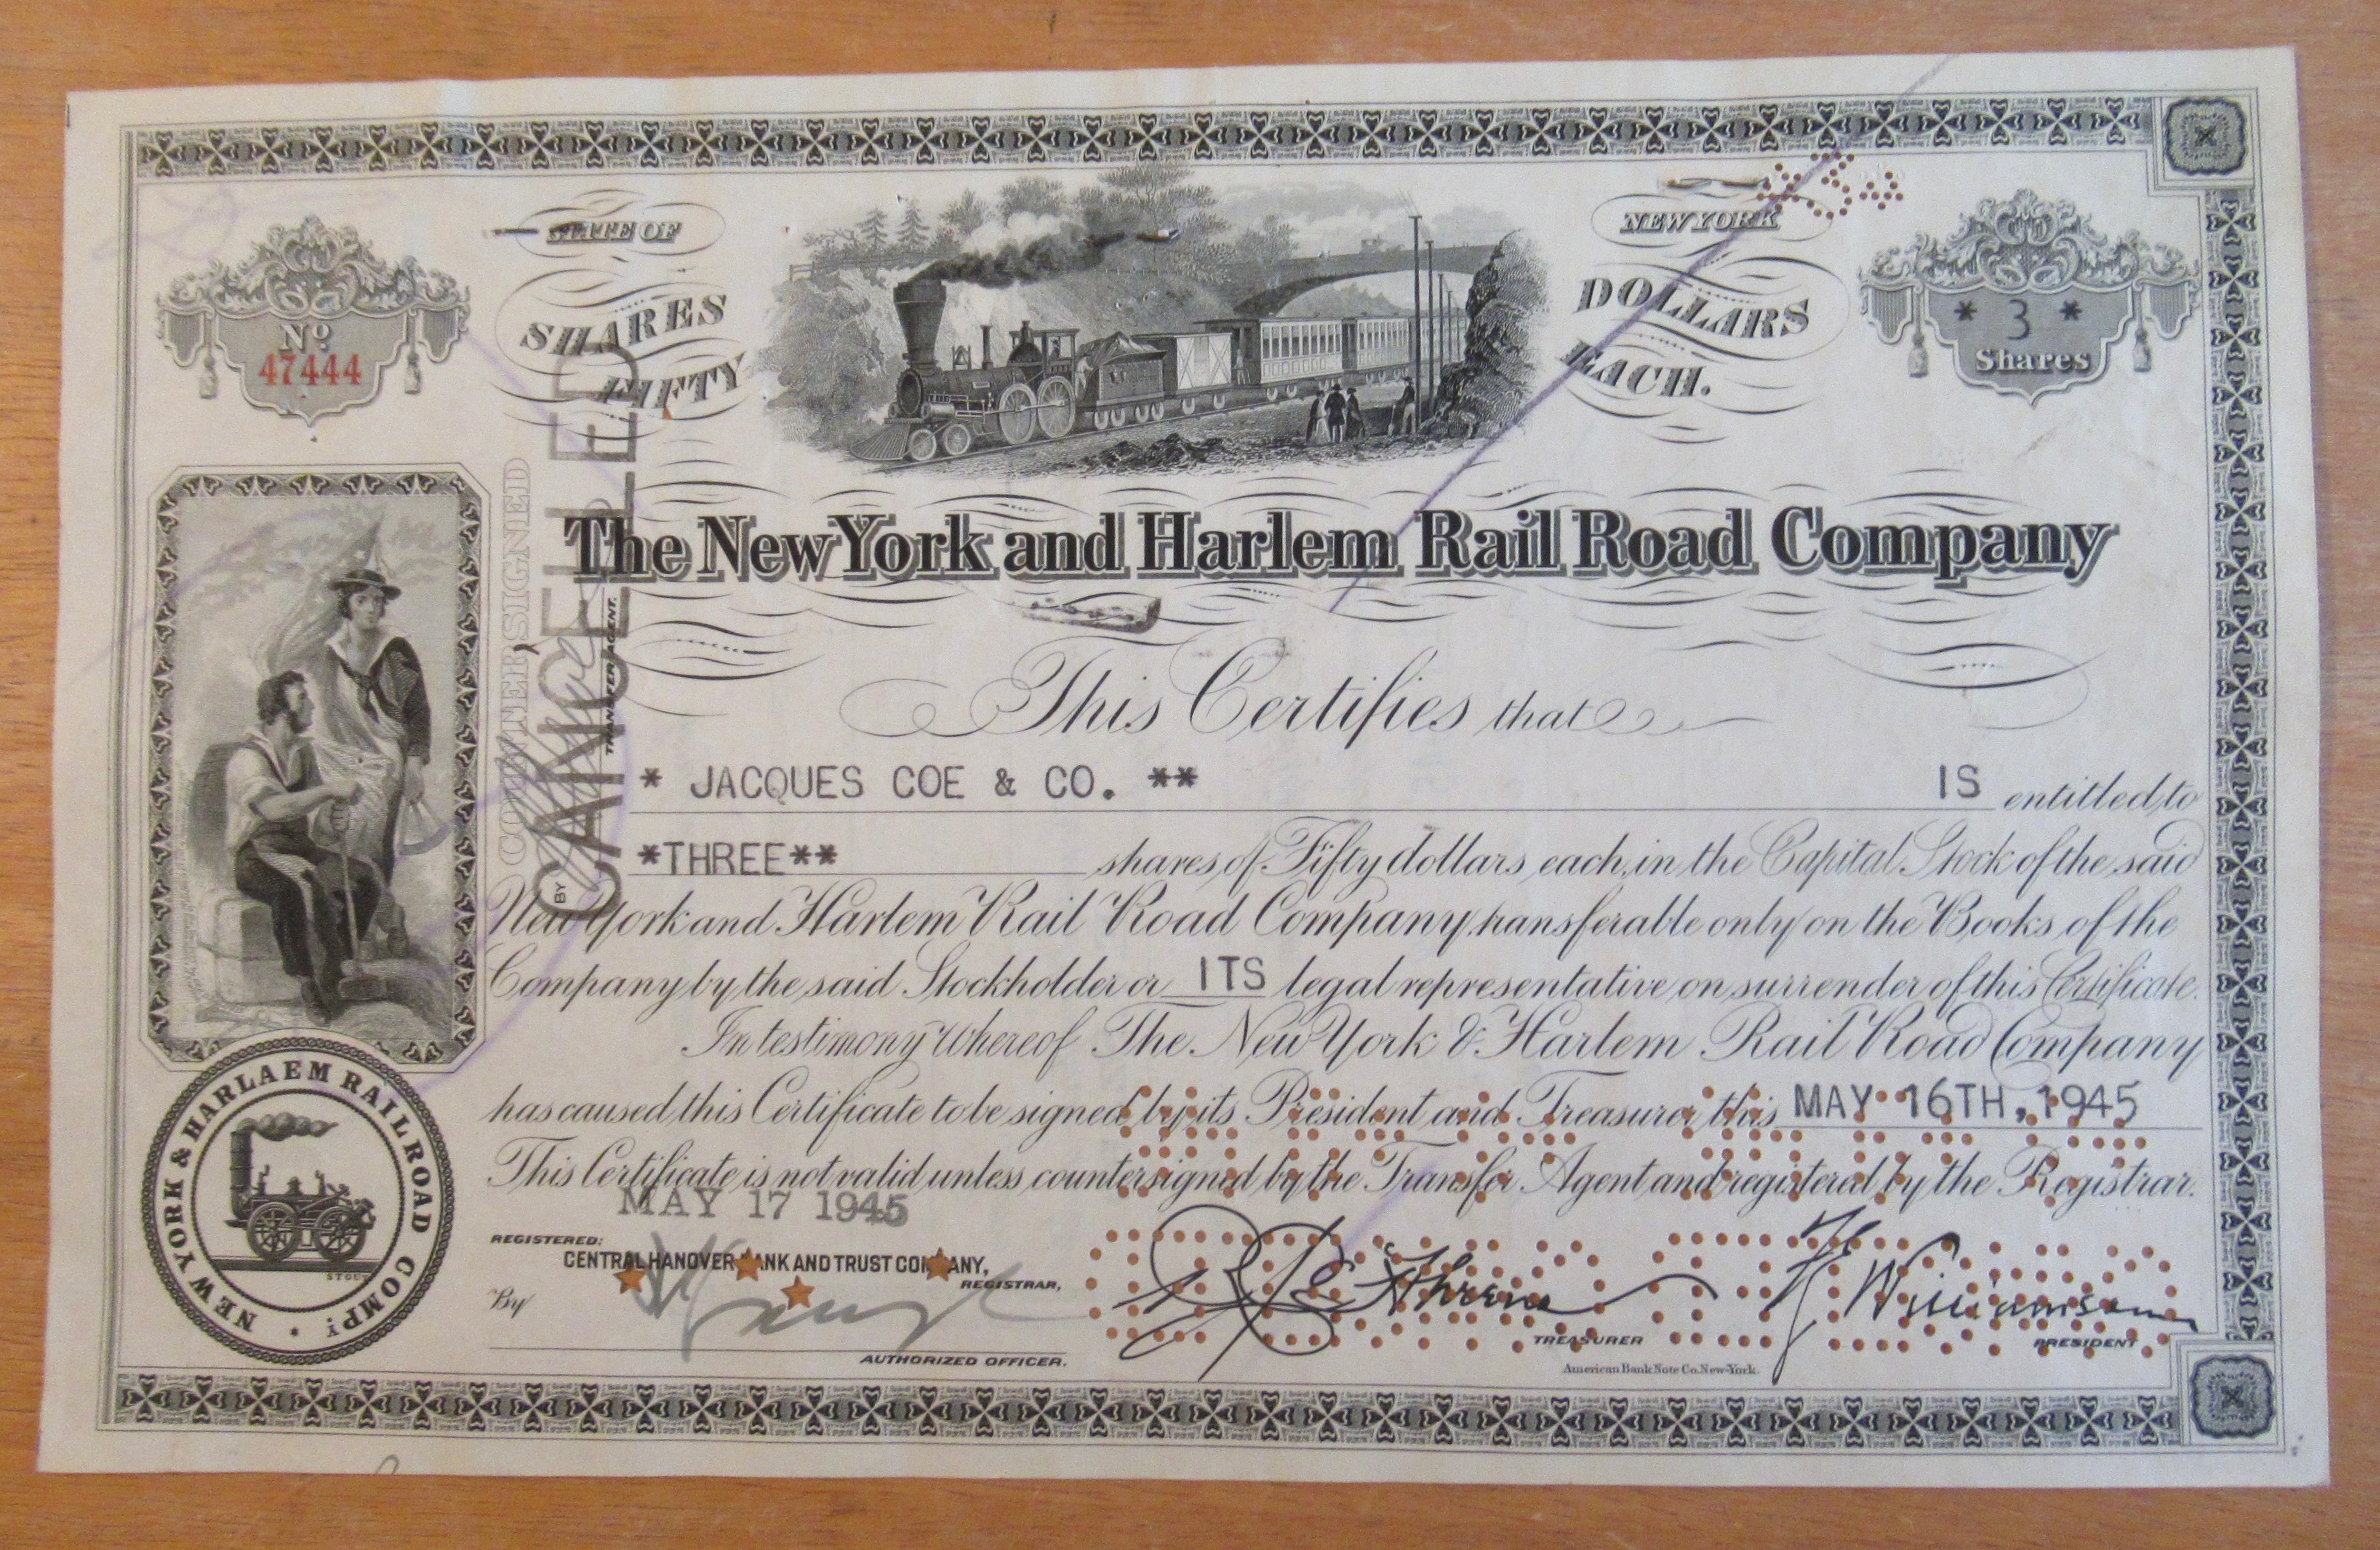 STATE OF
NEW YORK
No
47444
SHARES
FIFTY
DOLLARS
EACH.
* 3 *
Shares
COUNTERSIGNED
CANCELLED
TRANSFER AGENT.
BY
The New York and Harlem Rail Road Company
This Certifies that
* JACQUES COE & CO. ** IS entitled to
*THREE** shares of Fifty dollars each, in the Capital Stock of the said
New York and Harlem Rail Road Company, transferable only on the Books of the
Company by the said Stockholder or ITS legal representative on surrender of this Certificate.
In testimony whereof The New York & Harlem Rail Road Company
has caused this Certificate to be signed by its President and Treasurer this MAY 16TH, 1945
This Certificate is not valid unless countersigned by the Transfer Agent and registered by the Registrar.
MAY 17 1945
REGISTERED:
CENTRAL HANOVER BANK AND TRUST COMPANY,
REGISTRAR,
By
AUTHORIZED OFFICER.
TREASURER
Williamson
PRESIDENT
American Bank Note Co. New-York.
NEW YORK & HARLAEM RAILROAD COMPY.
STOUT